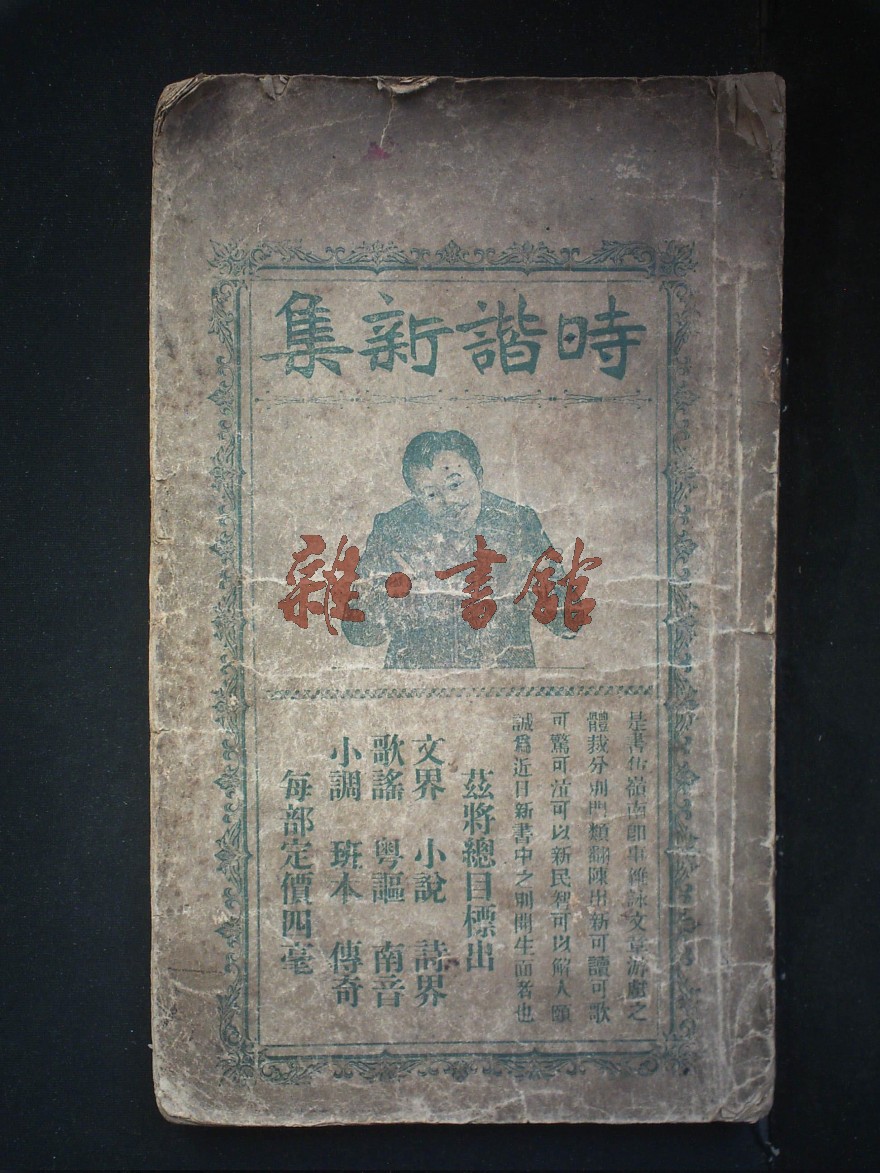 時諧新集
雜·書館
是書仿嶺南即事雜詠文章游戲之
體裁分別門類翻陳出新可讀可歌
可驚可泣可以新民智可以解人頤
誠爲近日新書中之別開生面者也
茲將總目標出
文界 小說 詩界
歌謠 粵謳 南音
小調 班本 傳奇
每部定價四毫